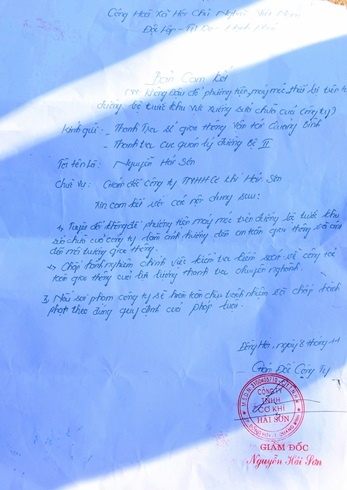 Cộng Hoà Xã Hội Chủ Nghĩa Việt Nam
Độc Lập - Tự Do - Hạnh Phúc
Bản Cam Kết
(V/v không đậu phương tiện, máy móc, thiết bị trên
đường bộ trước khu vực xưởng sửa chữa của công ty)
Kính gửi: - Thanh Tra sở giao thông Vận tải Quảng Bình
- Thanh tra cục quản lý đường bộ II
Tôi tên là: Nguyễn Hải Sơn
Chức vụ: Giám đốc công ty TNHH Cơ Khí Hải Sơn
Xin cam kết với các nội dung sau:
1, không để phương tiện máy móc trên đường bộ trước khu
sửa chữa của công ty làm ảnh hưởng đến an toàn giao thông
môi trường giao thông.
2, Chấp hành nghiêm chỉnh việc kiểm tra kiểm soát về công tác
toàn giao thông của lực lượng thanh tra chuyên ngành.
3, Nếu sai phạm công ty sẽ hoàn toàn chịu trách nhiệm và chấp hành
phạt theo đúng quy định của pháp luật.
Đồng Hới, ngày 2 tháng 11
Giám Đốc Công Ty
CÔNG TY
TNHH
CƠ KHÍ
HẢI SƠN
GIÁM ĐỐC
Nguyễn Hải Sơn